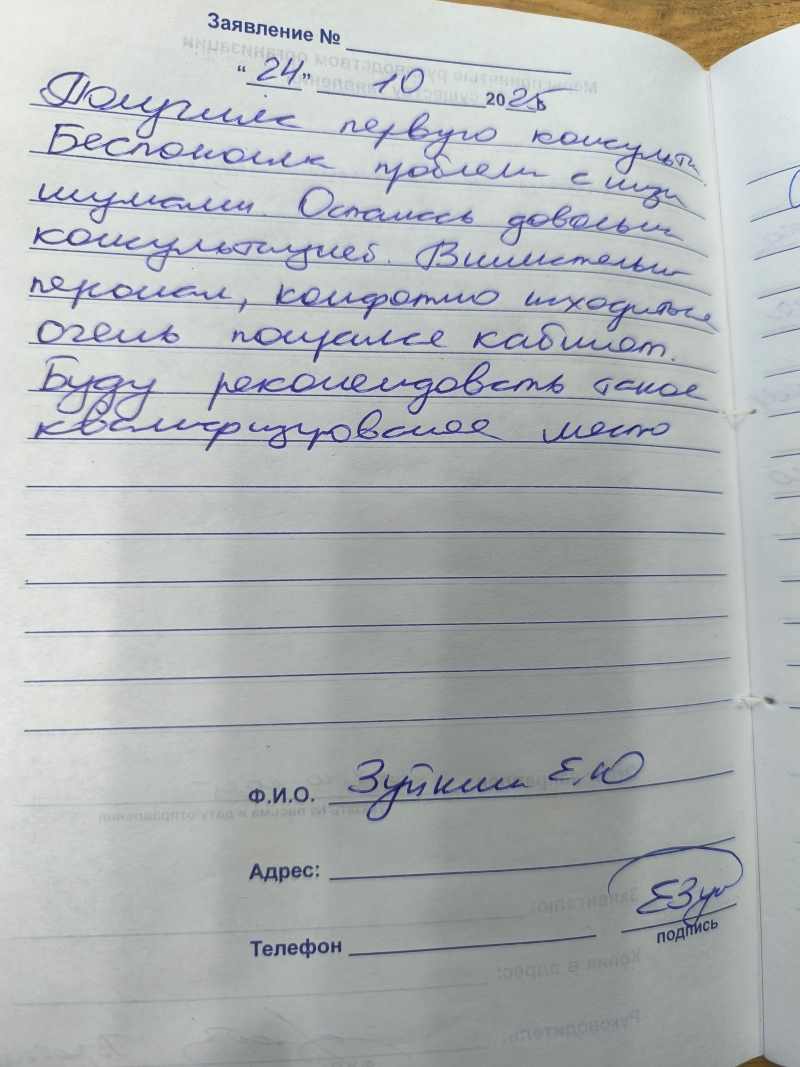 Заявление №
"24" 10 2025
Получила первую консульта
Беспокоила проблема с
шумами. Осталась довольна
консультацией. Внимательный
персонал, комфортно находиться
очень понравился кабинет.
Буду рекомендовать такое
квалифицированное место
Ф.И.О. Е.Ю
Адрес:
Телефон
подпись